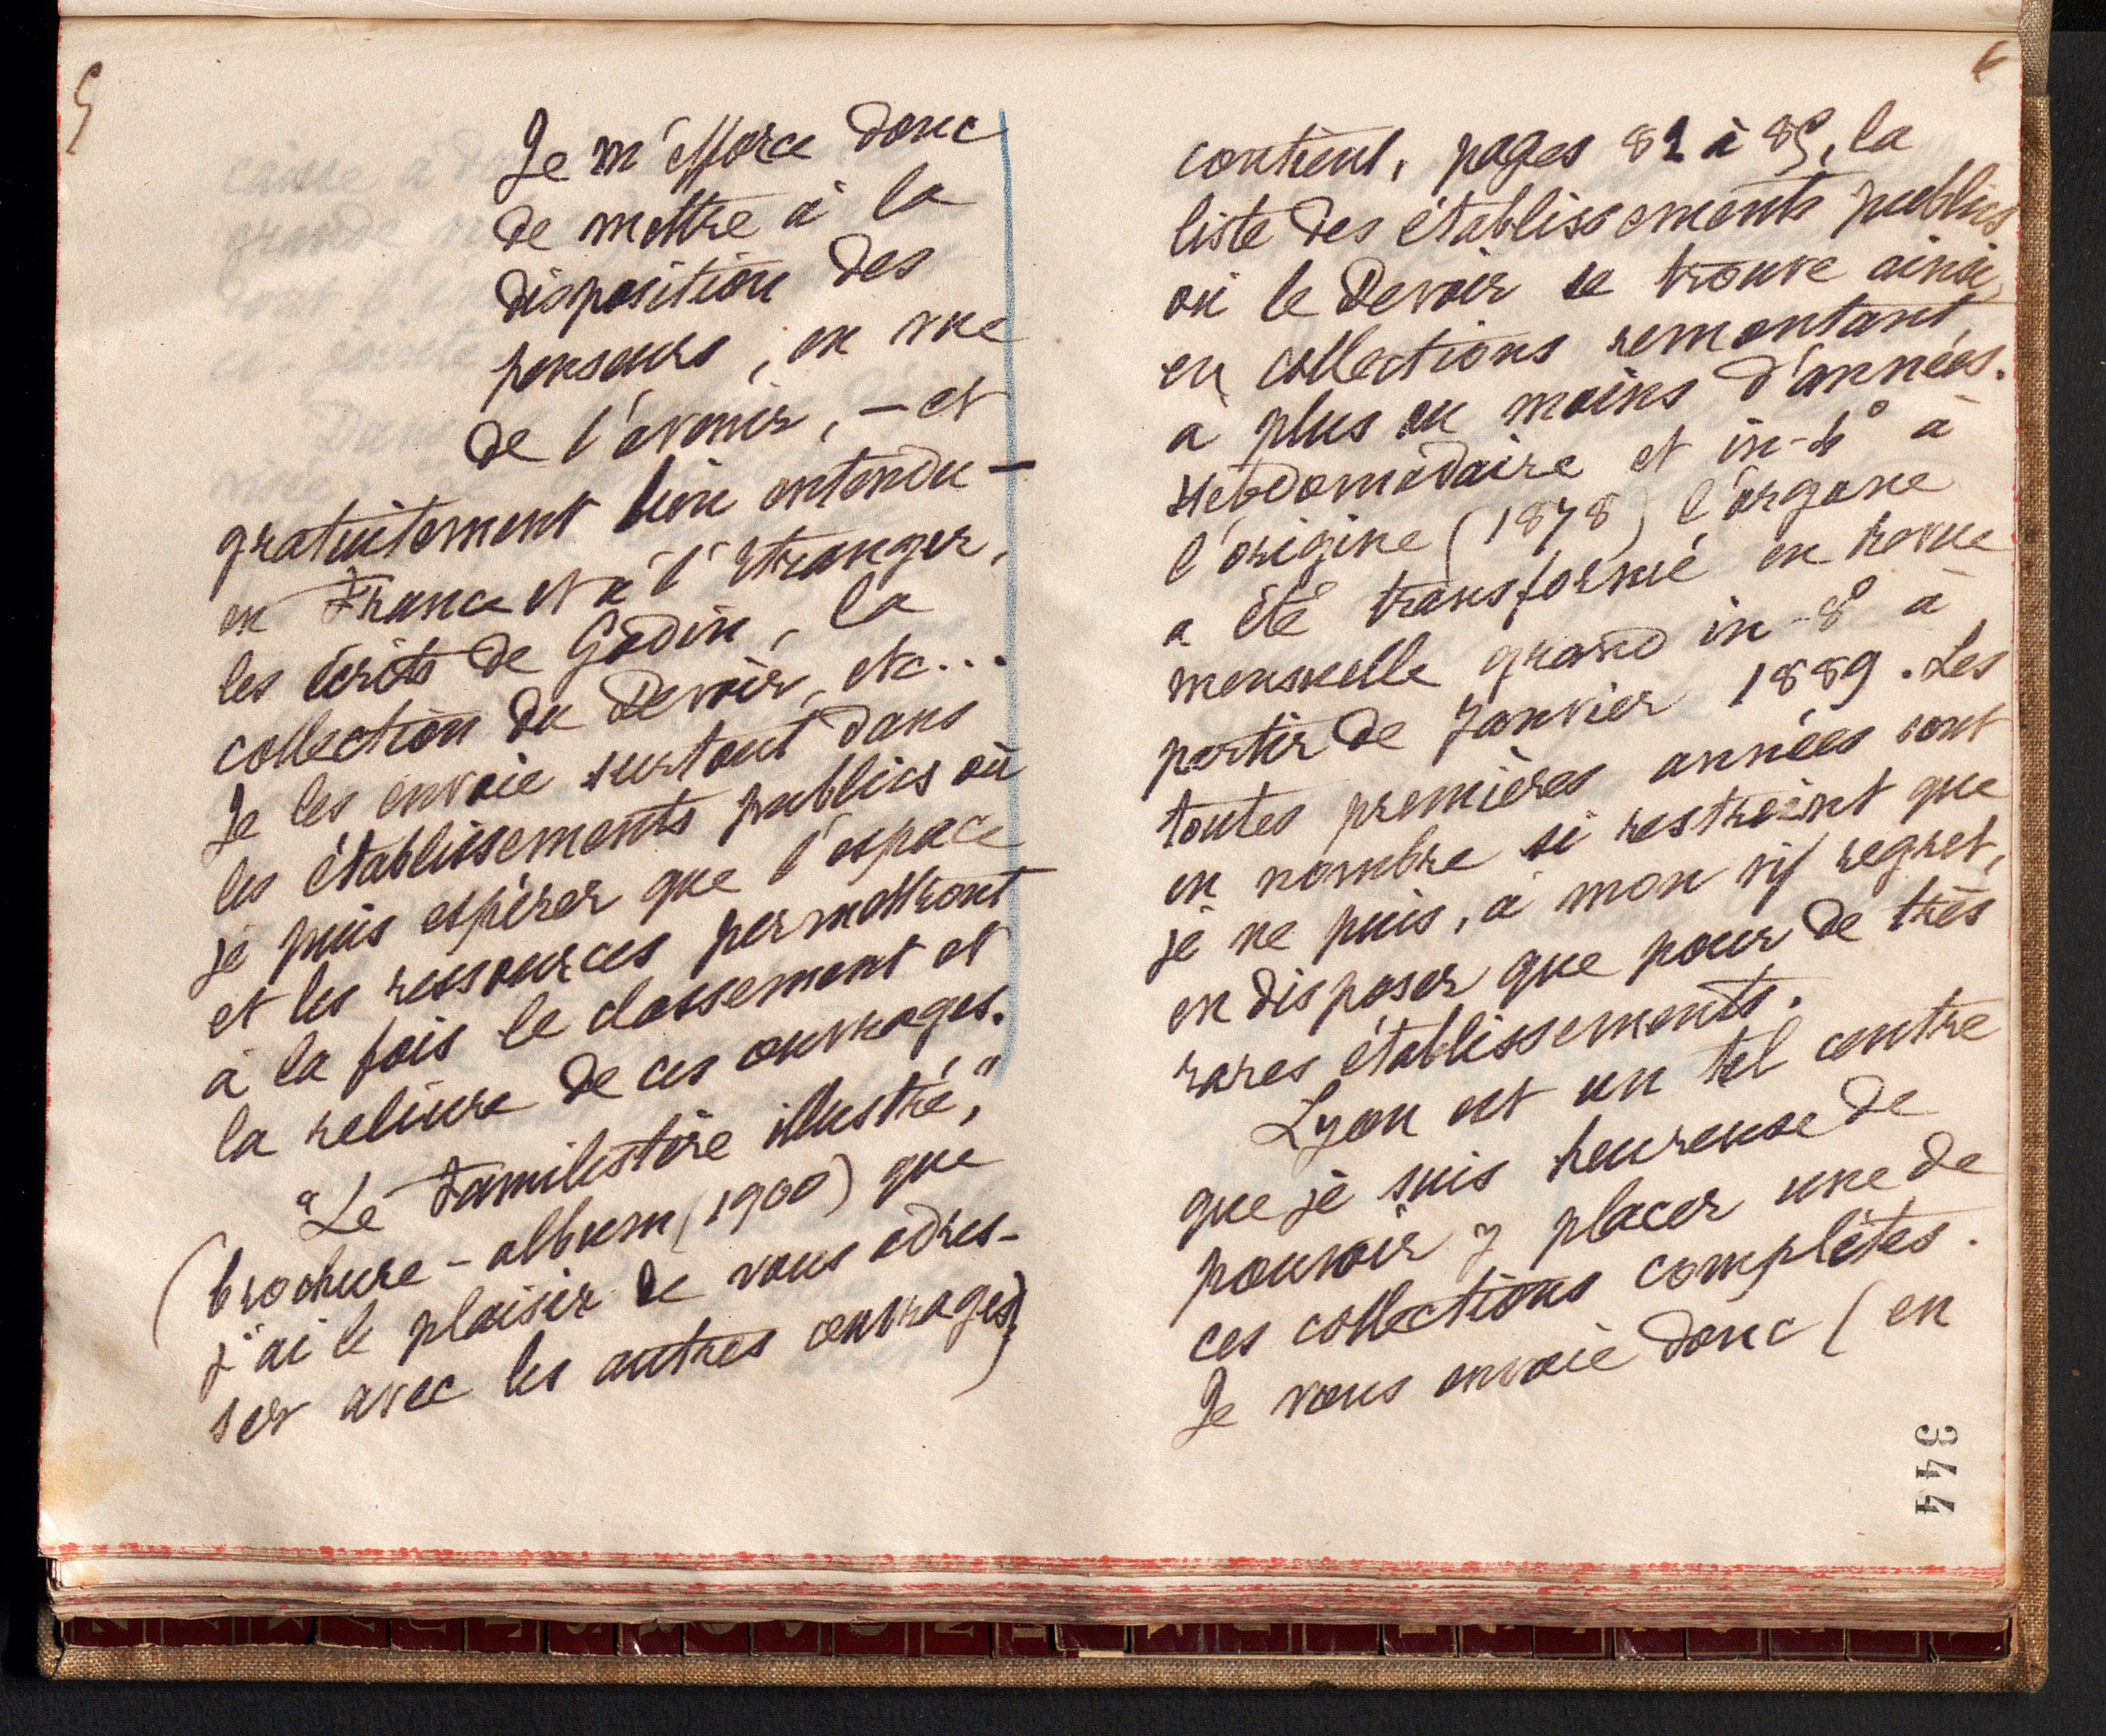 5
Je m'efforce donc
de mettre à la
disposition des
penseurs, en vue
de l'avenir, — et
gratuitement bien entendu —
en France et à l'Etranger,
les écrits de Godin, la
collection du Devoir, etc...
Je les envoie surtout dans
les établissements publics où
je puis espérer que l'espace
et les ressources permettront
à la fois le classement et
la reliure de ces ouvrages.
"Le Familistère illustré,"
(brochure-album (1900) que
j'ai le plaisir de vous adres-
ser avec les autres ouvrages)
6
contient, pages 81 à 85, la
liste des établissements publics
où le Devoir se trouve ainsi,
en collections remontant
à plus ou moins d'années.
Hebdomadaire et in-4° à
l'origine (1878) l'organe
a été transformé en revue
mensuelle grand in-8° à
partir de Janvier 1889. Les
toutes premières années sont
en nombre si restreint que
je ne puis, à mon vif regret,
en disposer que pour de très
rares établissements.
Lyon est un tel centre
que je suis heureuse de
pouvoir y placer une de
ces collections complètes.
Je vous envoie donc (en
344